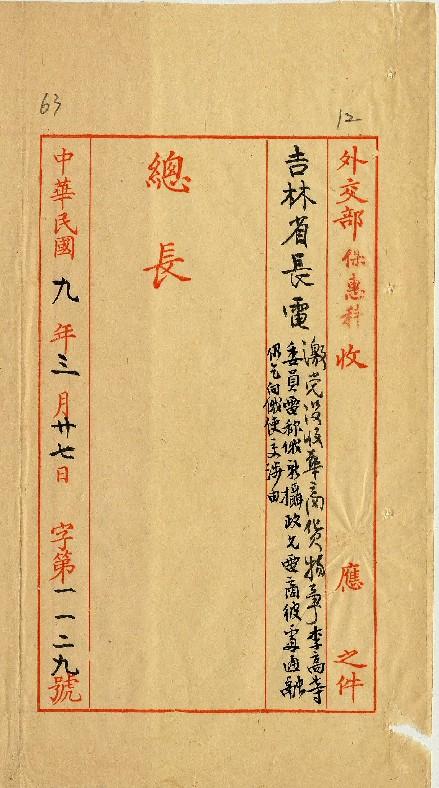 12
63
外交部保惠科收 應 之件
吉林省長電
激党沒收華商貨物事李高等
委員電稱俄新攝政允電商彼處通融
仍乞向俄使交涉由
總長
中華民國九年三月廿七日 字第一一二九號